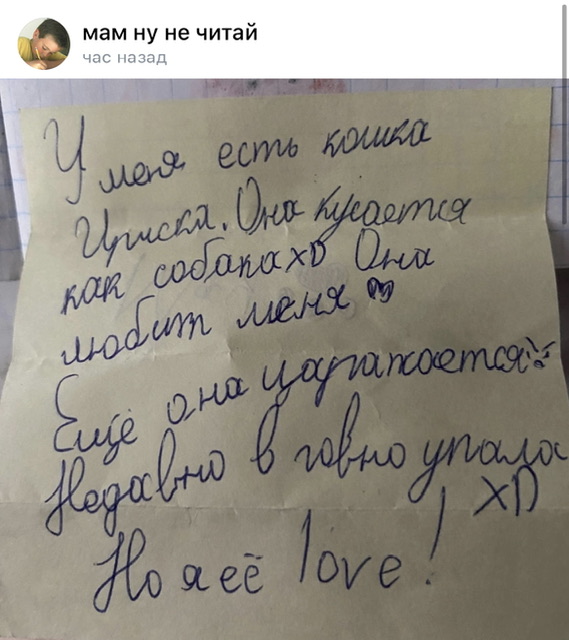 мам ну не читай
час назад
У меня есть кошка
Ириска. Она кусается
как собака xD Она
любит меня
Ещё она царапается
Недавно в говно упала
XD
Но я её love!